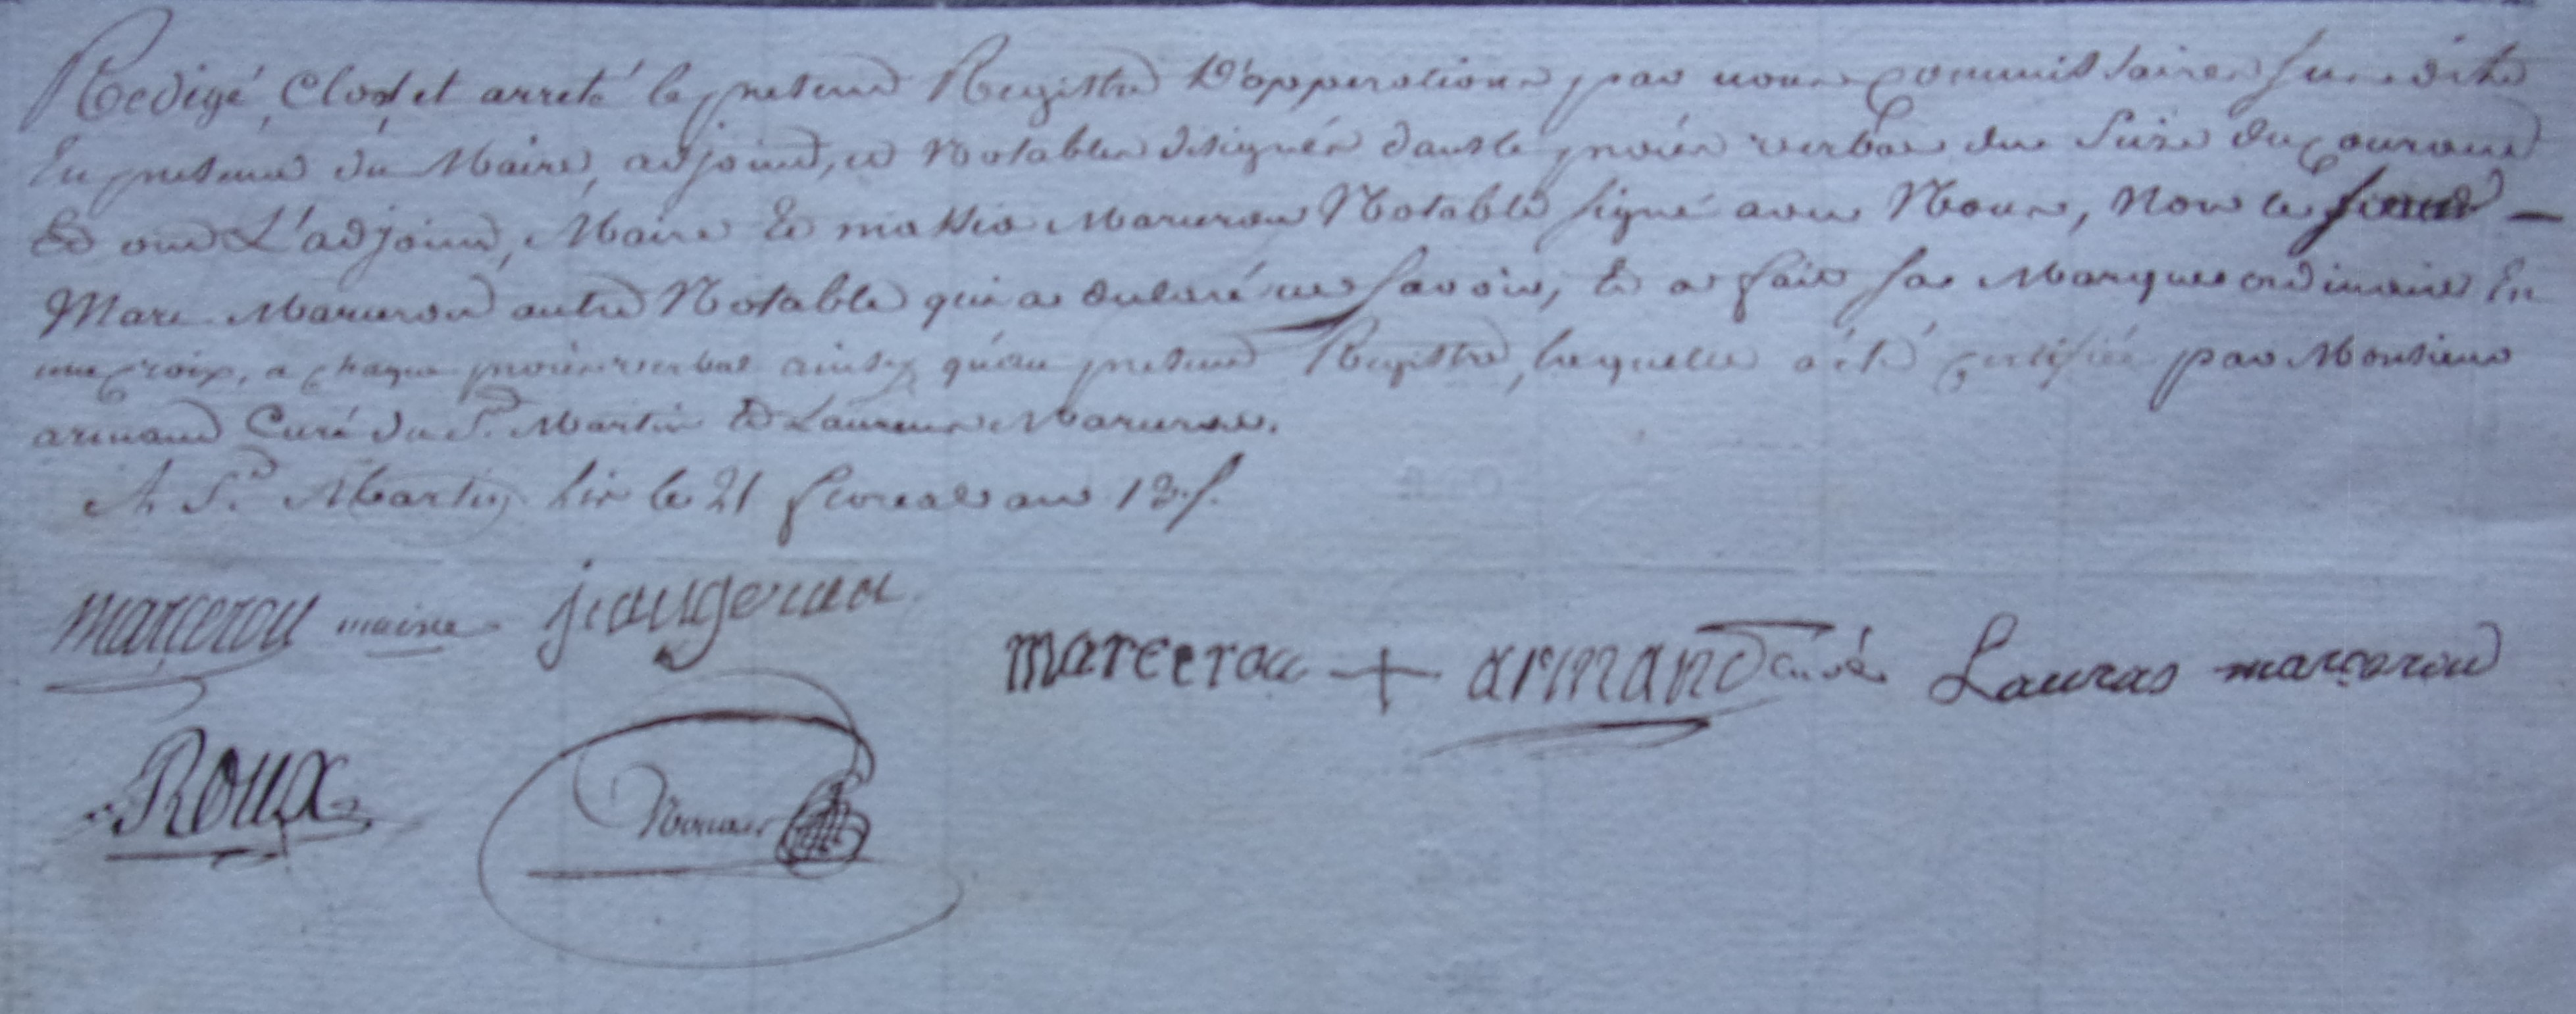 Redigé, Clos et arreté le present Registre D'opperations par nous commissaires susdits
En presence du Maire, adjoint, et Notables designés dans le procés verbal du seize du courant
Et ont L'adjoint, Maire Et Marcerou Notable signé avec Nous, Non le sieur —
Marc Marcerou autre Notable qui a declaré ne savoir, Et a fait sa Marque ordinaire En
une croix, a chaque procés verbal ainsy qu'au present Registre, laquelle a été certifiée par Monsieur
armand Curé du St. Martin Et Laurens Marcerou.
A St. Martin le 21 floreal an 13.
marcerou maire jeaugerau
marcerou + armand curé Lauras marcerou
Roux